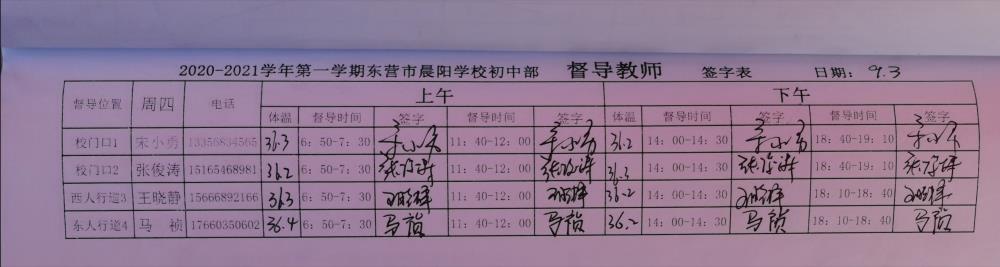 2020-2021学年第一学期东营市晨阳学校初中部 督导教师 签字表 日期: 9.3
督导位置 周四 电话 上午 下午
体温 督导时间 签字 督导时间 签字 体温 督导时间 签字 督导时间 签字
校门口1 宋小勇 13356834565 36.3 6:50-7:30 宋小勇 11:40-12:00 宋小勇 36.2 14:00-14:30 宋小勇 18:40-19:10 宋小勇
校门口2 张俊涛 15165468981 36.2 6:50-7:30 张俊涛 11:40-12:00 张俊涛 36.3 14:00-14:30 张俊涛 18:40-19:10 张俊涛
西人行道3 王晓静 15666892166 36.3 6:50-7:30 王晓静 11:40-12:00 王晓静 36.2 14:00-14:30 王晓静 18:10-18:40 王晓静
东人行道4 马 祯 17660350602 36.4 6:50-7:30 马祯 11:40-12:00 马祯 36.2 14:00-14:30 马祯 18:10-18:40 马祯